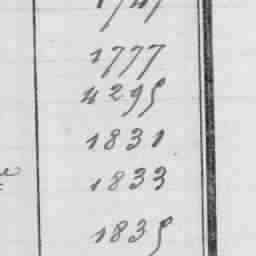 1777
4295
1831
1833
1835